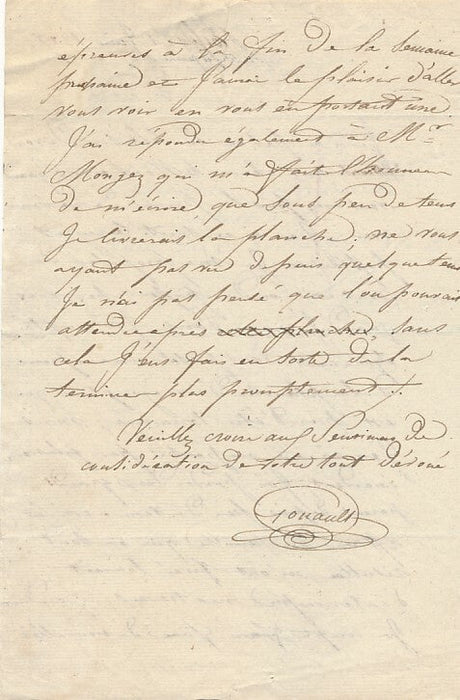 épreuves à la fin de la semaine
prochaine et j'aurai le plaisir d'aller
vous voir en vous en portant une.
J'ai répondu également à Mr
Mongez qui m'a fait l'honneur
de m'écrire, que sous peu de tems
je livrerais la planche; ne vous
ayant pas vu depuis quelque tems
Je n'ai pas pensé que l'on pouvait
attendre après sans
cela j'eus fais en sorte de la
terminer plus promptement.
Veuillez croire aux Sentimens de
considération de votre tout dévoué
Gouault